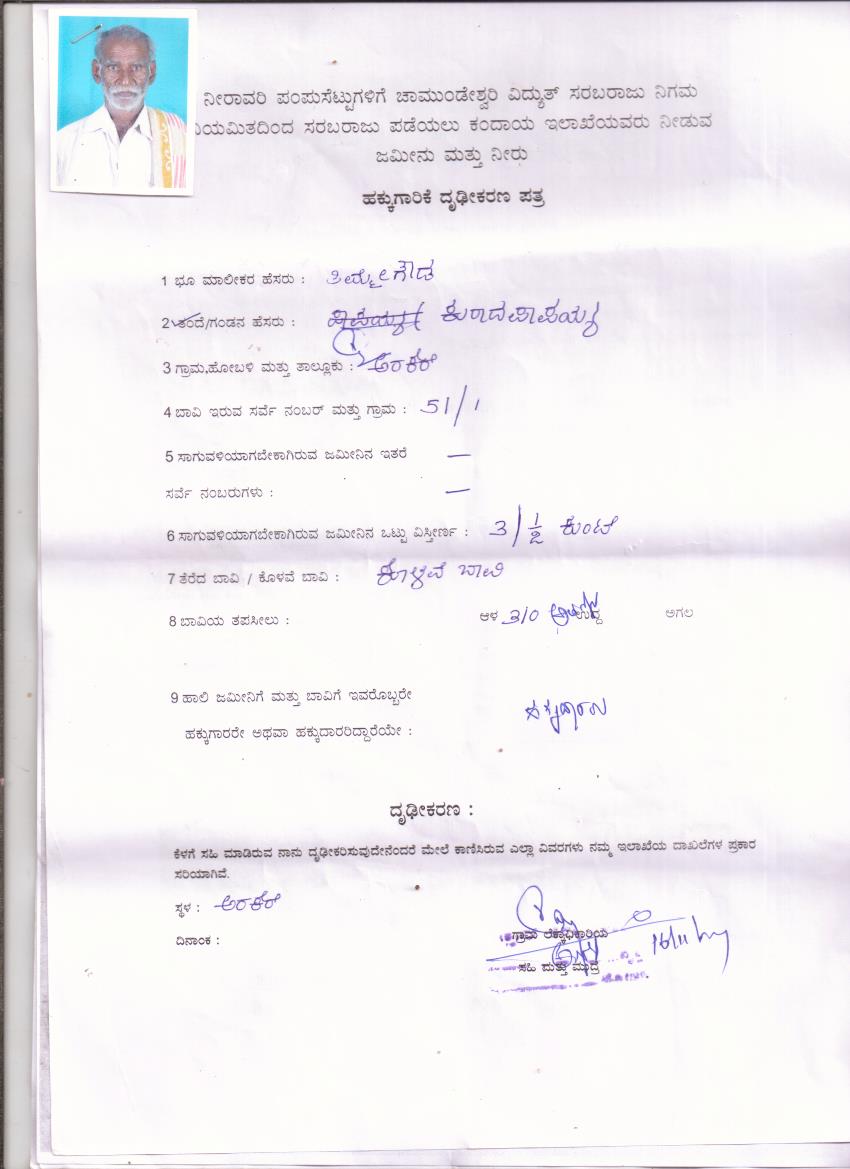 ನೀರಾವರಿ ಪಂಪುಸೆಟ್ಟುಗಳಿಗೆ ಚಾಮುಂಡೇಶ್ವರಿ ವಿದ್ಯುತ್ ಸರಬರಾಜು ನಿಗಮ
ಯಮಿತದಿಂದ ಸರಬರಾಜು ಪಡೆಯಲು ಕಂದಾಯ ಇಲಾಖೆಯವರು ನೀಡುವ
ಜಮೀನು ಮತ್ತು ನೀರು
ಹಕ್ಕುಗಾರಿಕೆ ದೃಢೀಕರಣ ಪತ್ರ
1 ಭೂ ಮಾಲೀಕರ ಹೆಸರು : ತಿಮ್ಮೇಗೌಡ
2 ತಂದೆ/ಗಂಡನ ಹೆಸರು : ಕುರಾದಪಾಪಯ್ಯ
3 ಗ್ರಾಮ,ಹೋಬಳಿ ಮತ್ತು ತಾಲ್ಲೂಕು : ಅರಕೆರೆ
4 ಬಾವಿ ಇರುವ ಸರ್ವೆ ನಂಬರ್ ಮತ್ತು ಗ್ರಾಮ : 51/1
5 ಸಾಗುವಳಿಯಾಗಬೇಕಾಗಿರುವ ಜಮೀನಿನ ಇತರೆ —
ಸರ್ವೆ ನಂಬರುಗಳು : —
6 ಸಾಗುವಳಿಯಾಗಬೇಕಾಗಿರುವ ಜಮೀನಿನ ಒಟ್ಟು ವಿಸ್ತೀರ್ಣ : 3/½ ಕುಂಟೆ
7 ತೆರೆದ ಬಾವಿ / ಕೊಳವೆ ಬಾವಿ : ಕೊಳವೆ ಬಾವಿ
8 ಬಾವಿಯ ತಪಸೀಲು : ಆಳ 310 ಉದ್ದ ಅಗಲ
9 ಹಾಲಿ ಜಮೀನಿಗೆ ಮತ್ತು ಬಾವಿಗೆ ಇವರೊಬ್ಬರೇ
ಹಕ್ಕುಗಾರರೇ ಅಥವಾ ಹಕ್ಕುದಾರರಿದ್ದಾರೆಯೇ :
ದೃಢೀಕರಣ :
ಕೆಳಗೆ ಸಹಿ ಮಾಡಿರುವ ನಾನು ದೃಢೀಕರಿಸುವುದೇನೆಂದರೆ ಮೇಲೆ ಕಾಣಿಸಿರುವ ಎಲ್ಲಾ ವಿವರಗಳು ನಮ್ಮ ಇಲಾಖೆಯ ದಾಖಲೆಗಳ ಪ್ರಕಾರ
ಸರಿಯಾಗಿವೆ.
ಸ್ಥಳ : ಅರಕೆರೆ
ದಿನಾಂಕ :
ಗ್ರಾಮ ಲೆಕ್ಕಾಧಿಕಾರಿಯ
ಸಹಿ ಮತ್ತು ಮುದ್ರೆ